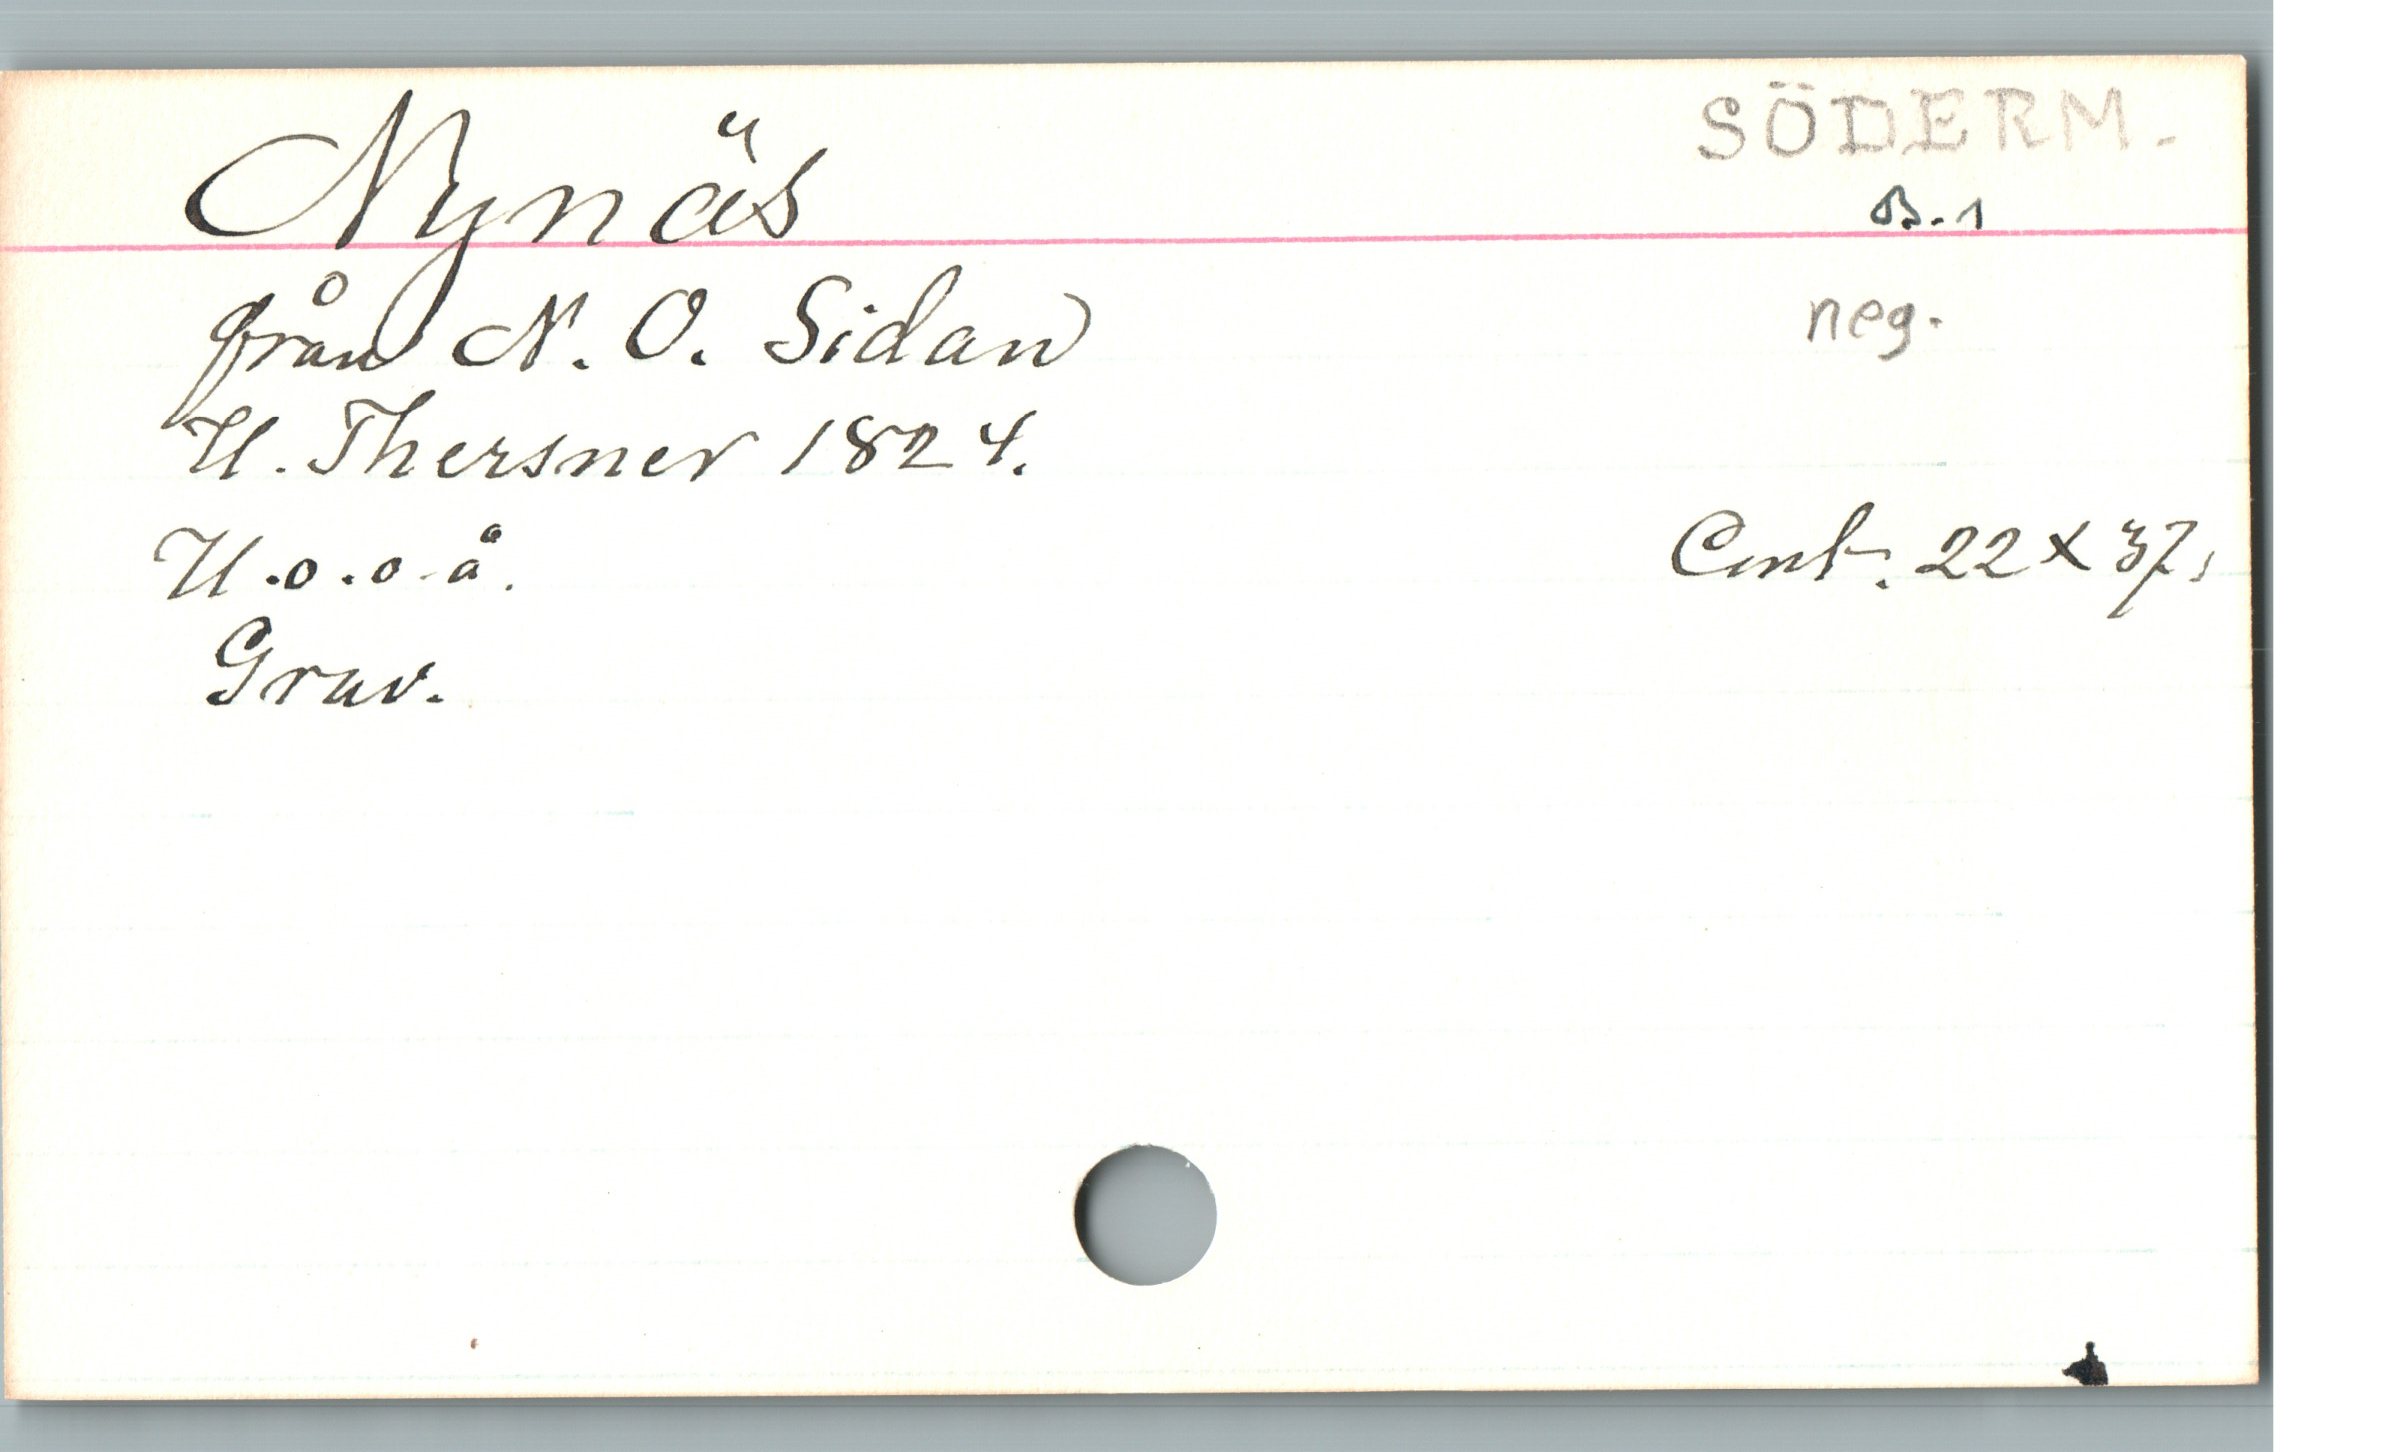 Nynäs
SÖDERM.
B.1
från N. O. Sidan
neg.
U. Thersner 1824.
U.o.o.å.
Cent. 22 x 37.
Grav.